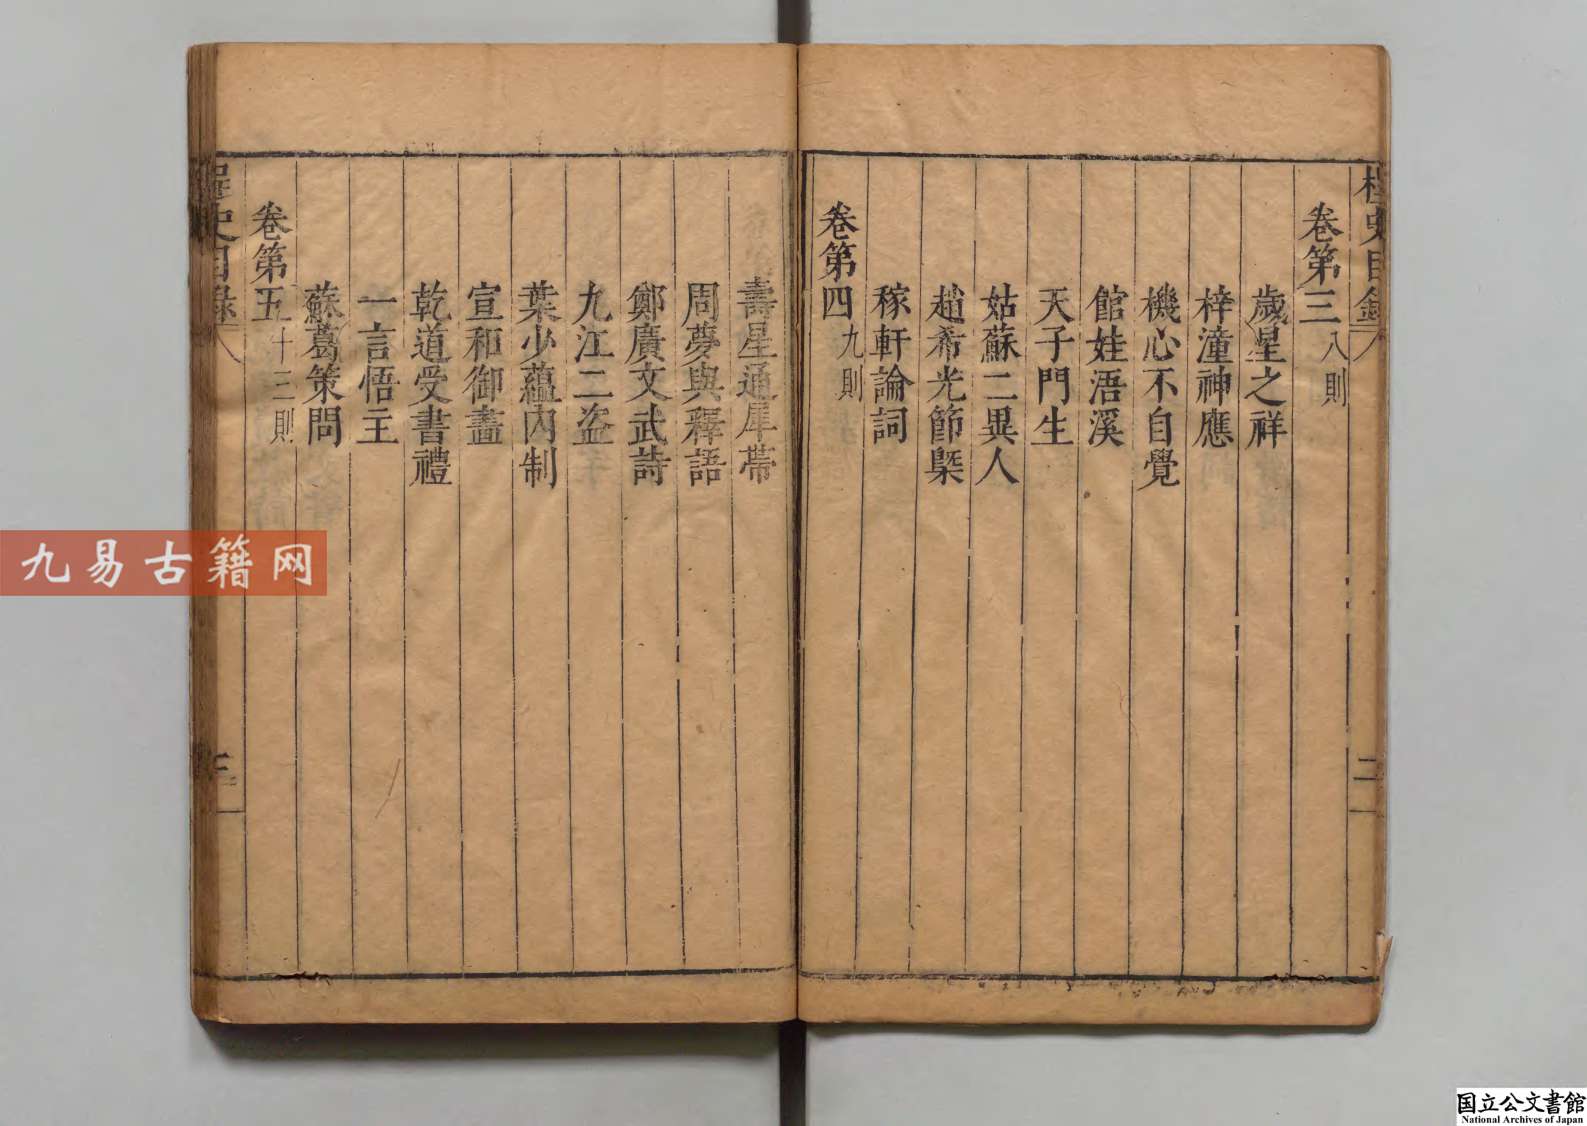 桯史目錄
二
卷第三 八則
歲星之祥
梓潼神應
機心不自覺
館娃浯溪
天子門生
姑蘇二異人
趙希光節槩
稼軒論詞
卷第四 九則
壽星通犀帶
周夢與釋語
鄭廣文武詩
九江二盜
葉少蘊內制
宣和御畫
乾道受書禮
一言悟主
蘇葛策問
卷第五 十三則
桯史目錄
三
九易古籍网
国立公文書館
National Archives of Japan